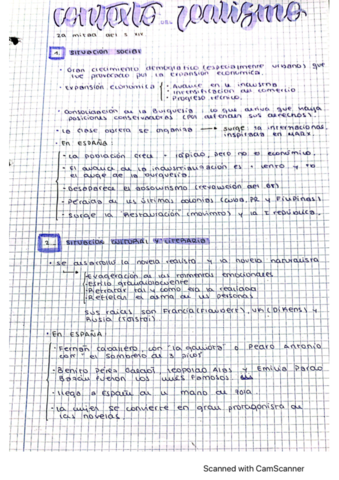 contexto realismo
2a mitad del s XIX
1. SITUACIÓN SOCIAL
· Gran crecimiento demográfico (especialmente urbano) que
fue provocado por la expansión económica.
· Expansión económica · Avance en la industria
· Intensificación del comercio
· Progreso técnico.
· Consolidación de la burguesía: lo que hizo que haya
posiciones conservadoras (
· La clase obrera se organiza → surge la internacional
inspirada en MARX.
· En ESPAÑA:
· La población crece + rápido, pero no lo económico.
· El avance de la industrialización es + lento y
el auge de la burguesía.
· Desaparece el absolutismo (revolución del
· Pérdida de las últimas colonias (Cuba, PR y Filipinas).
· Surge la Restauración (movimiento) y la I República.
2. SITUACIÓN CULTURAL Y LITERARIA
· Se desarrolló la novela realista y la novela naturalista
· Exageración de los momentos emocionales
· Estilo grandilocuente
· Retratar tal y como era la realidad
· Reflejas el alma de los personajes
Sus raíces son Francia (Flaubert), UK (Dickens) y
Rusia (Tolstoi).
· En ESPAÑA:
· Fernán Caballero, con "la gaviota" o Pedro Antonio
con "el sombrero de 3 picos"
· Benito Pérez Galdós, Leopoldo Alas y Emilia Pardo
Bazán fueron los más famosos.
· Llegó a España de la mano de Zola
· La mujer se convierte en gran protagonista de
las novelas.
Scanned with CamScanner